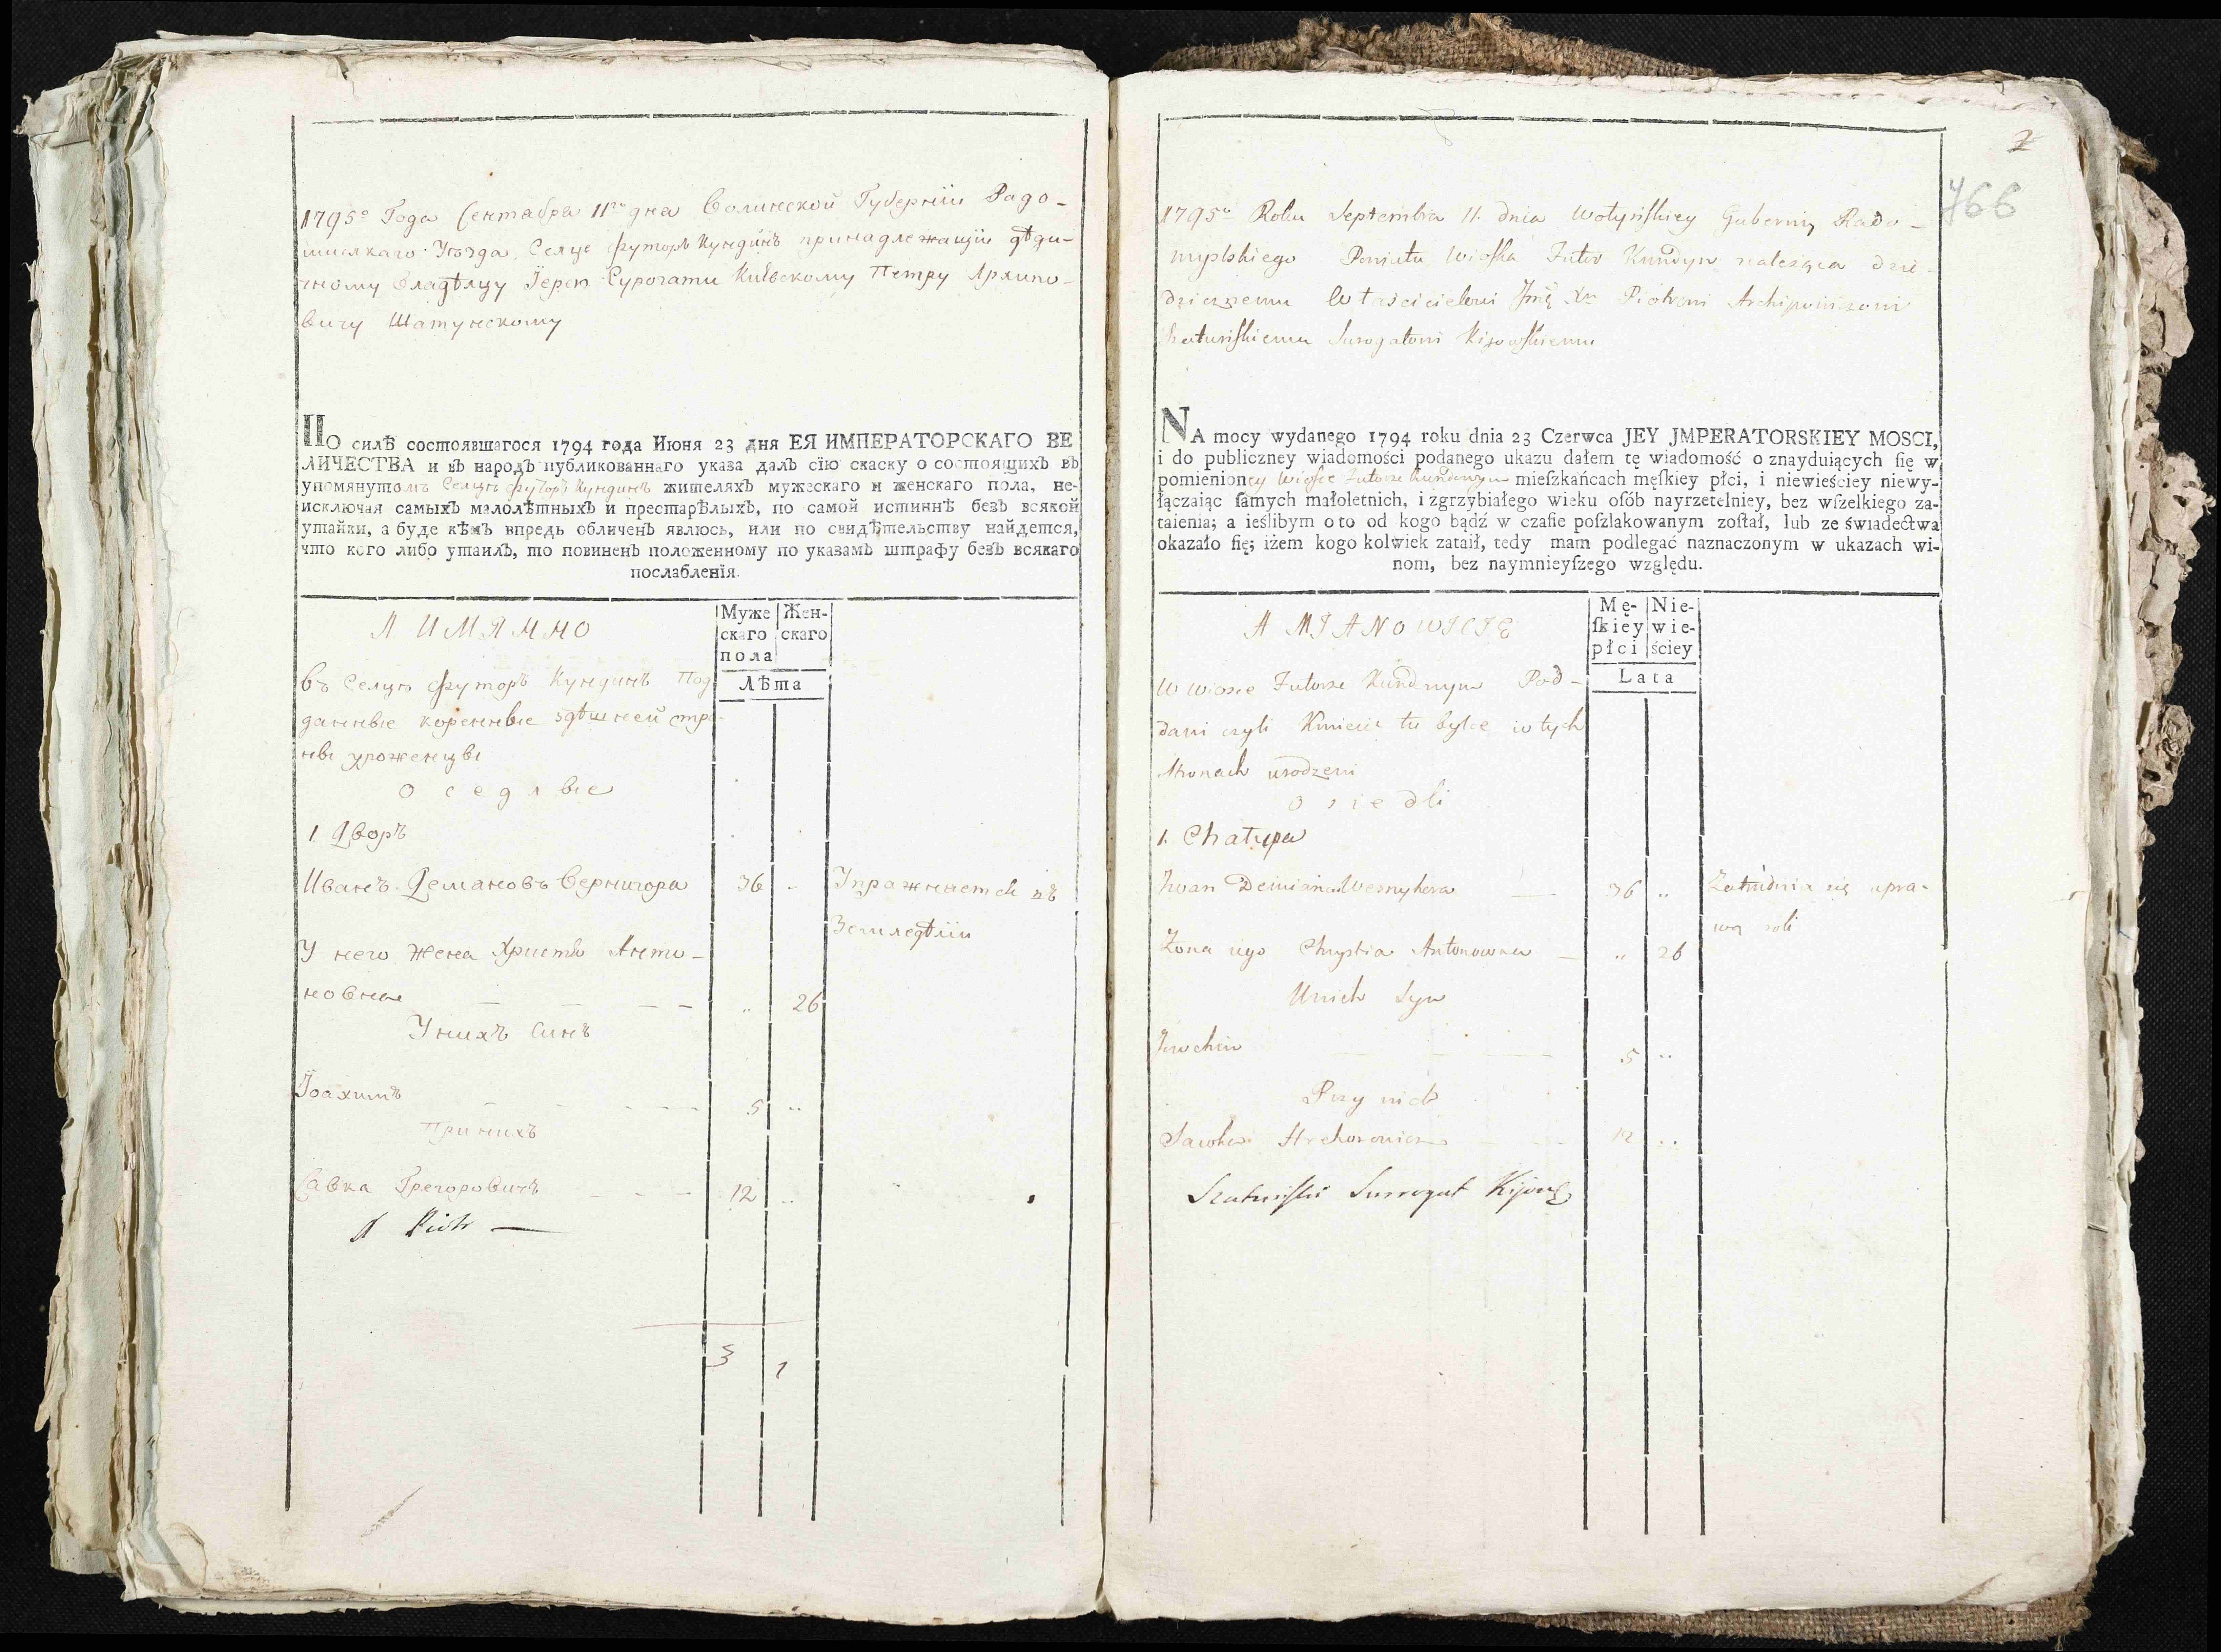 1795го Года Сентабра 11го дна Волинской Губернїи Радо-
мислкаго Уѣзда Селце футоръ Кундинъ принадлежащїи дѣди-
чному Владѣлцу Їерею Сурогати Киѣвскому Петру Архипо-
вичу Шатунскому
ПО силѣ состоявшагося 1794 года Июня 23 дня ЕЯ ИМПЕРАТОРСКАГО ВЕ
ЛИЧЕСТВА и въ народъ публикованнаго указа далъ сїю скаску о состоящихъ въ
упомянутомъ Селцѣ футоръ Кундинъ жителяхъ мужескаго и женскаго пола, не-
исключая самыхъ малолѣтныхъ и престарѣлыхъ, по самой истиннѣ безъ всякой
утайки, а буде кѣмъ впредь обличенъ явлюсь, или по свидѣтельству найдется,
что кого либо утаилъ, то повиненъ положенному по указамъ штрафу безъ всякаго
послабленїя.
А ИМЯННО
Муже
скаго
пола
Жен-
скаго
Лѣта
Въ Селцѣ футоръ Кундинъ Под
данные коренные здѣшней стра-
ны уроженцы
Оседлые
1 Дворъ
Иванъ Демановъ Вернигора 36 „ Упражнается въ
Земледѣлїи
У него жена Христя Анто-
новна „ 26
У нихъ Синъ
Їоахимъ 5 „
При нихъ
Савка Грегоровичъ 12 „
Piotr
3 1
2
766
1795o Roku Septembra 11. dnia Wołyńskiey Gubernij Rado-
myslskiego Powiatu Wioska Futor Kundyn należąca dzie-
dzicznemu Właścicielowi Jmę Xu Piotrowi Archipowiczowi
Szatuńskiemu Surogatowi Kijowskiemu
NA mocy wydanego 1794 roku dnia 23 Czerwca JEY JMPERATORSKIEY MOSCI,
i do publiczney wiadomości podanego ukazu dałem tę wiadomość o znayduiących ſię w
pomienioney Wiosce Futorze Kundynym mieſzkańcach męſkiey płci, i niewieściey niewy-
łączaiąc ſamych małoletnich, i zgrzybiałego wieku osób nayrzetelniey, bez wſzelkiego za-
taienia; a ieślibym o to od kogo bądź w czaſie poſzlakowanym zoſtał, lub ze świadectwa
okazało ſię; iżem kogo kolwiek zataił, tedy mam podlegać naznaczonym w ukazach wi-
nom, bez naymnieyſzego względu.
A MIANOWICIE
Mę-
ſkiey
płci
Nie-
wie-
ściey
Lata
W Wiosce Futorze Kundynym Pod-
dani czyli Kmiecie tu bylce w tych
stronach urodzeni
Osiedli
1. Chałupa
Iwan Demianow Wernyhora 36 „ Zatrudnia się upra-
wą roli
Zona iego Chrystia Antonowna „ 26
U nich Syn
Joachim 5 „
Przy nich
Sawka Hrehorowicz 12 „
Szatuński Surrogat Kijows